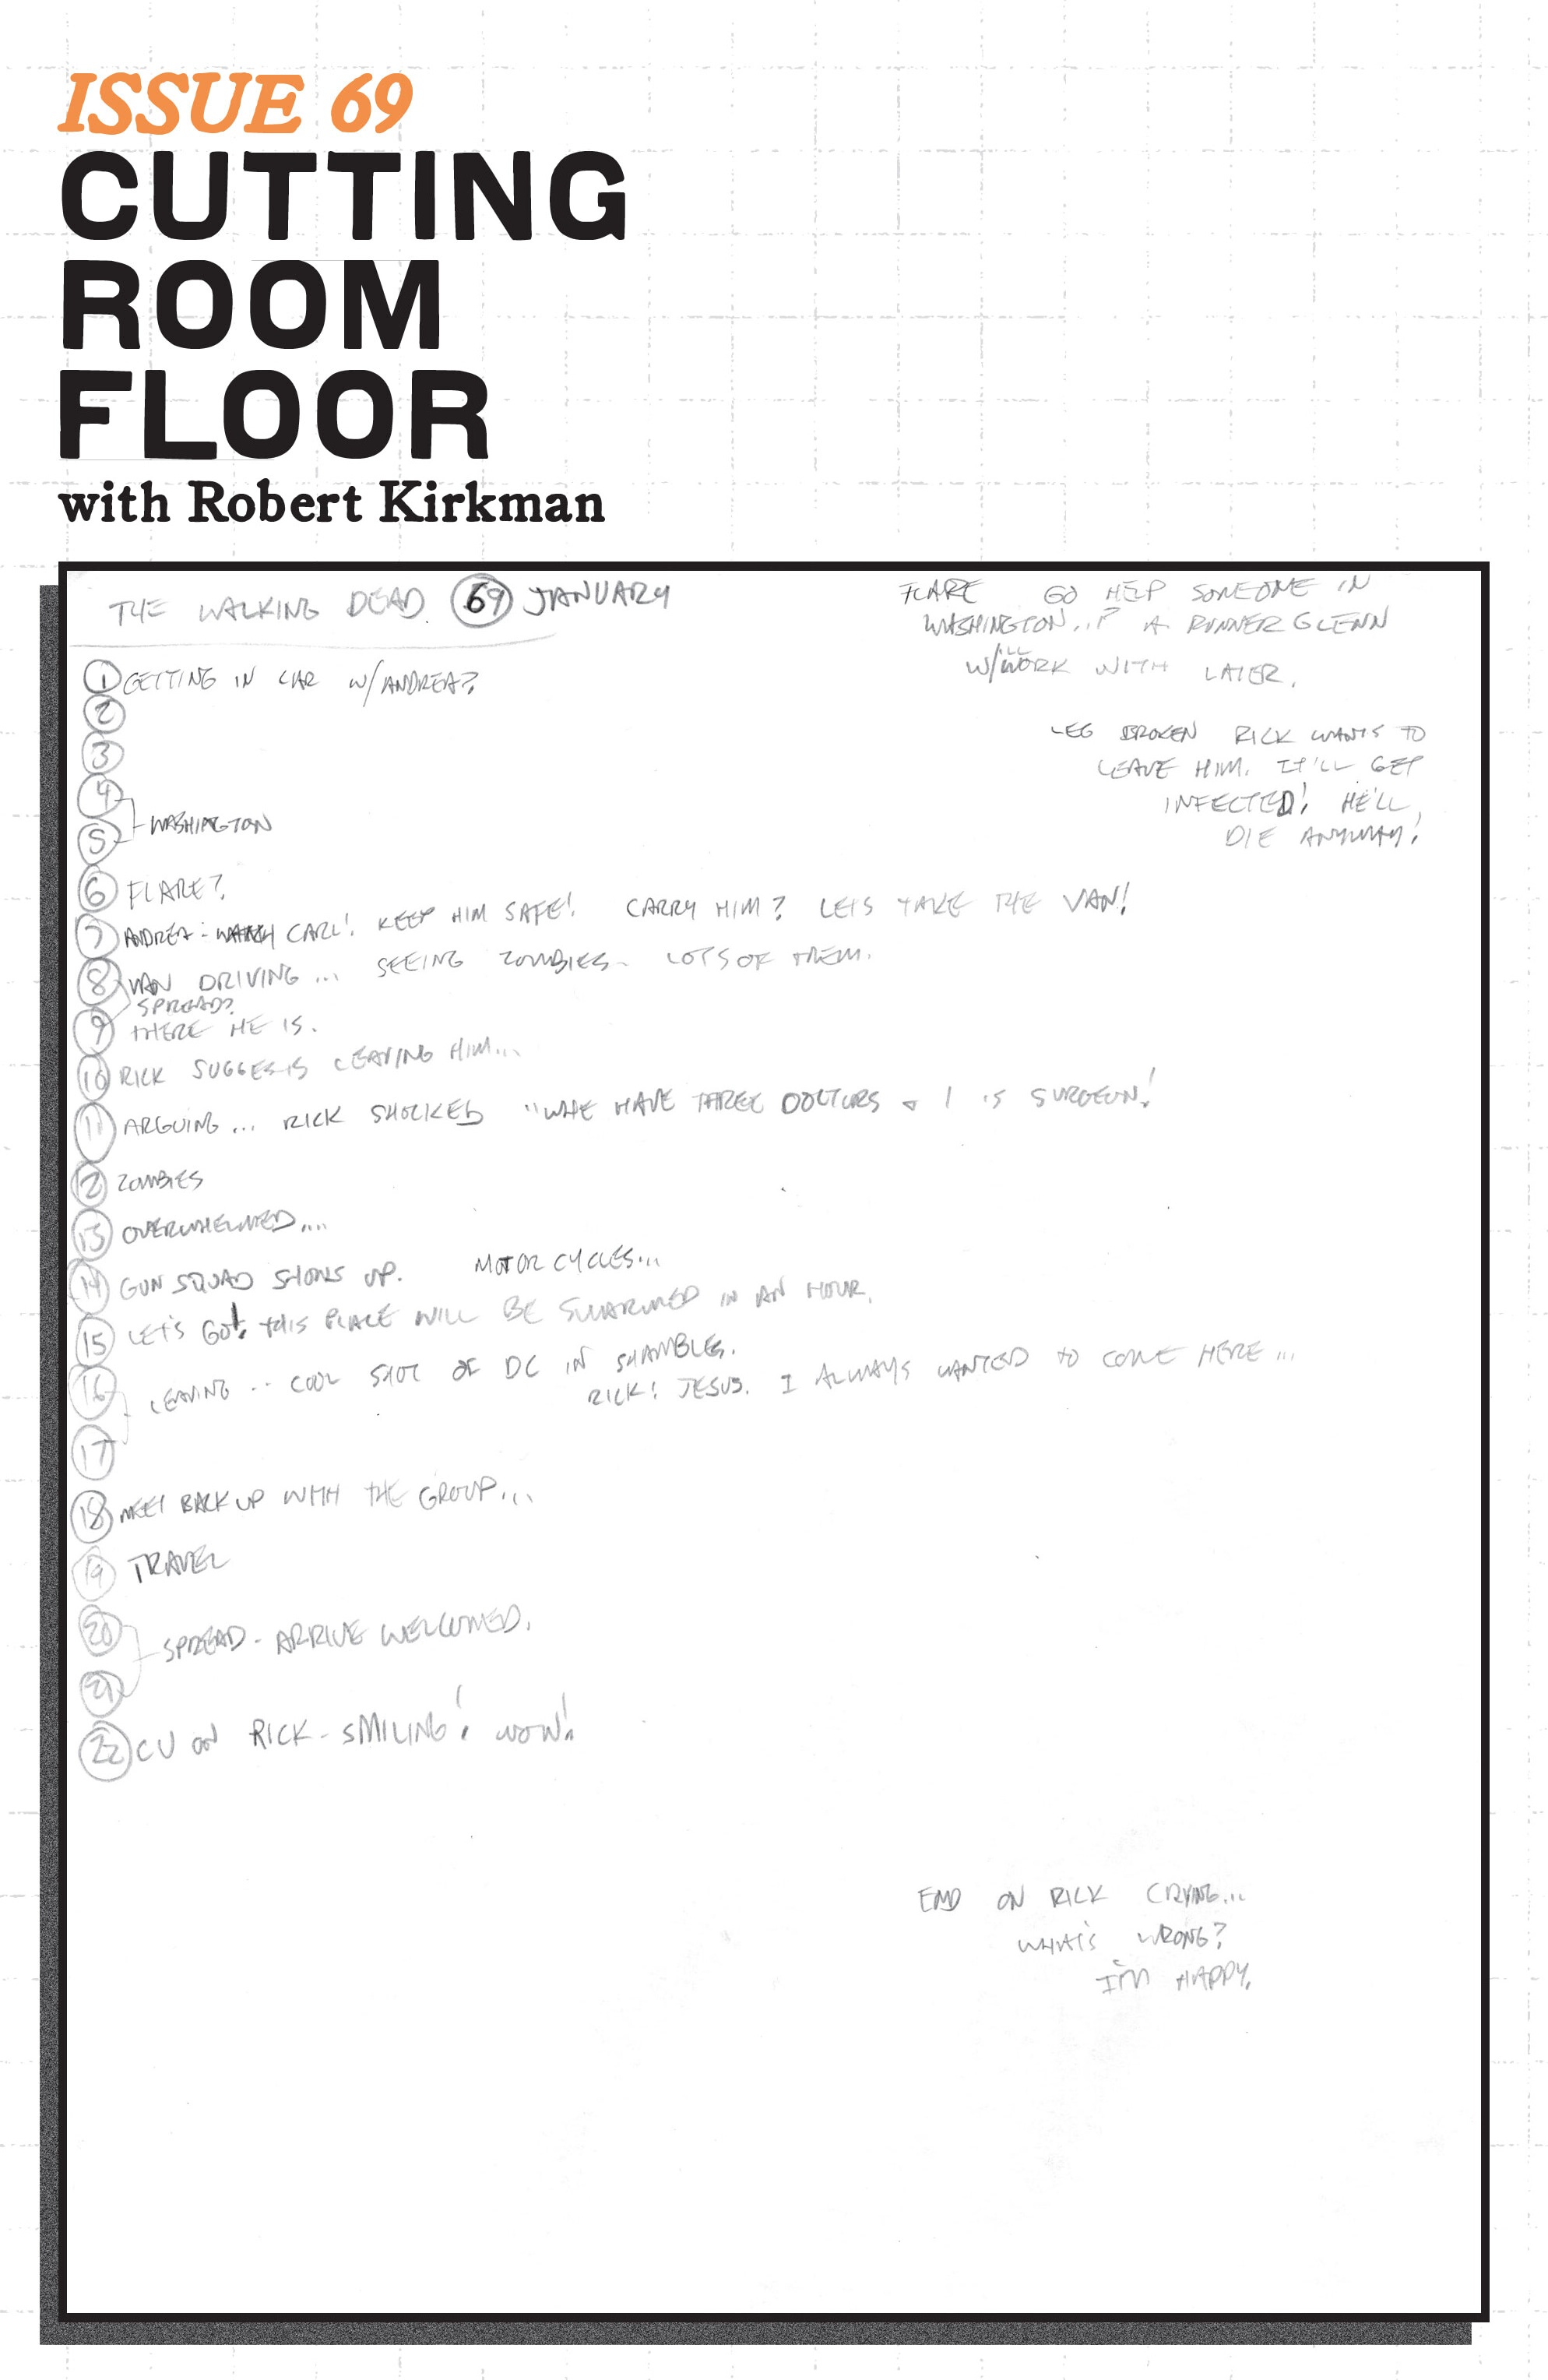 ISSUE 69
CUTTING
ROOM
FLOOR
with Robert Kirkman
THE WALKING DEAD 69 JANUARY
FLARE GO HELP SOMEONE IN
WASHINGTON...? A RUNNER GLENN
W/ILL WORK WITH LATER.
LEG BROKEN RICK WANTS TO
LEAVE HIM. IT'LL GET
INFECTED! HE'LL
DIE ANYWAY!
1 GETTING IN CAR W/ANDREA?
2
3
4
WASHINGTON
5
6 FLARE?
7 ANDREA - WATCH CARL! KEEP HIM SAFE! CARRY HIM? LETS TAKE THE VAN!
8 VAN DRIVING... SEEING ZOMBIES - LOTS OF THEM.
SPREAD?
9 THERE HE IS.
10 RICK SUGGESTS LEAVING HIM...
11 ARGUING... RICK SHOCKED "WE HAVE THREE DOCTORS & 1 IS SURGEON!
12 ZOMBIES
13 OVERWHELMED....
14 GUN SQUAD SHOWS UP. MOTORCYCLES...
15 LET'S GO! THIS PLACE WILL BE SWARMED IN AN HOUR.
16 LEAVING... COOL SHOT OF DC IN SHAMBLES.
RICK! JESUS. I ALWAYS WANTED TO COME HERE...
17
18 MEET BACK UP WITH THE GROUP...
19 TRAVEL
20
SPREAD - ARRIVE WELCOMED.
21
22 CU ON RICK - SMILING! WOW!
END ON RICK CRYING...
WHAT'S WRONG?
I'M HAPPY.